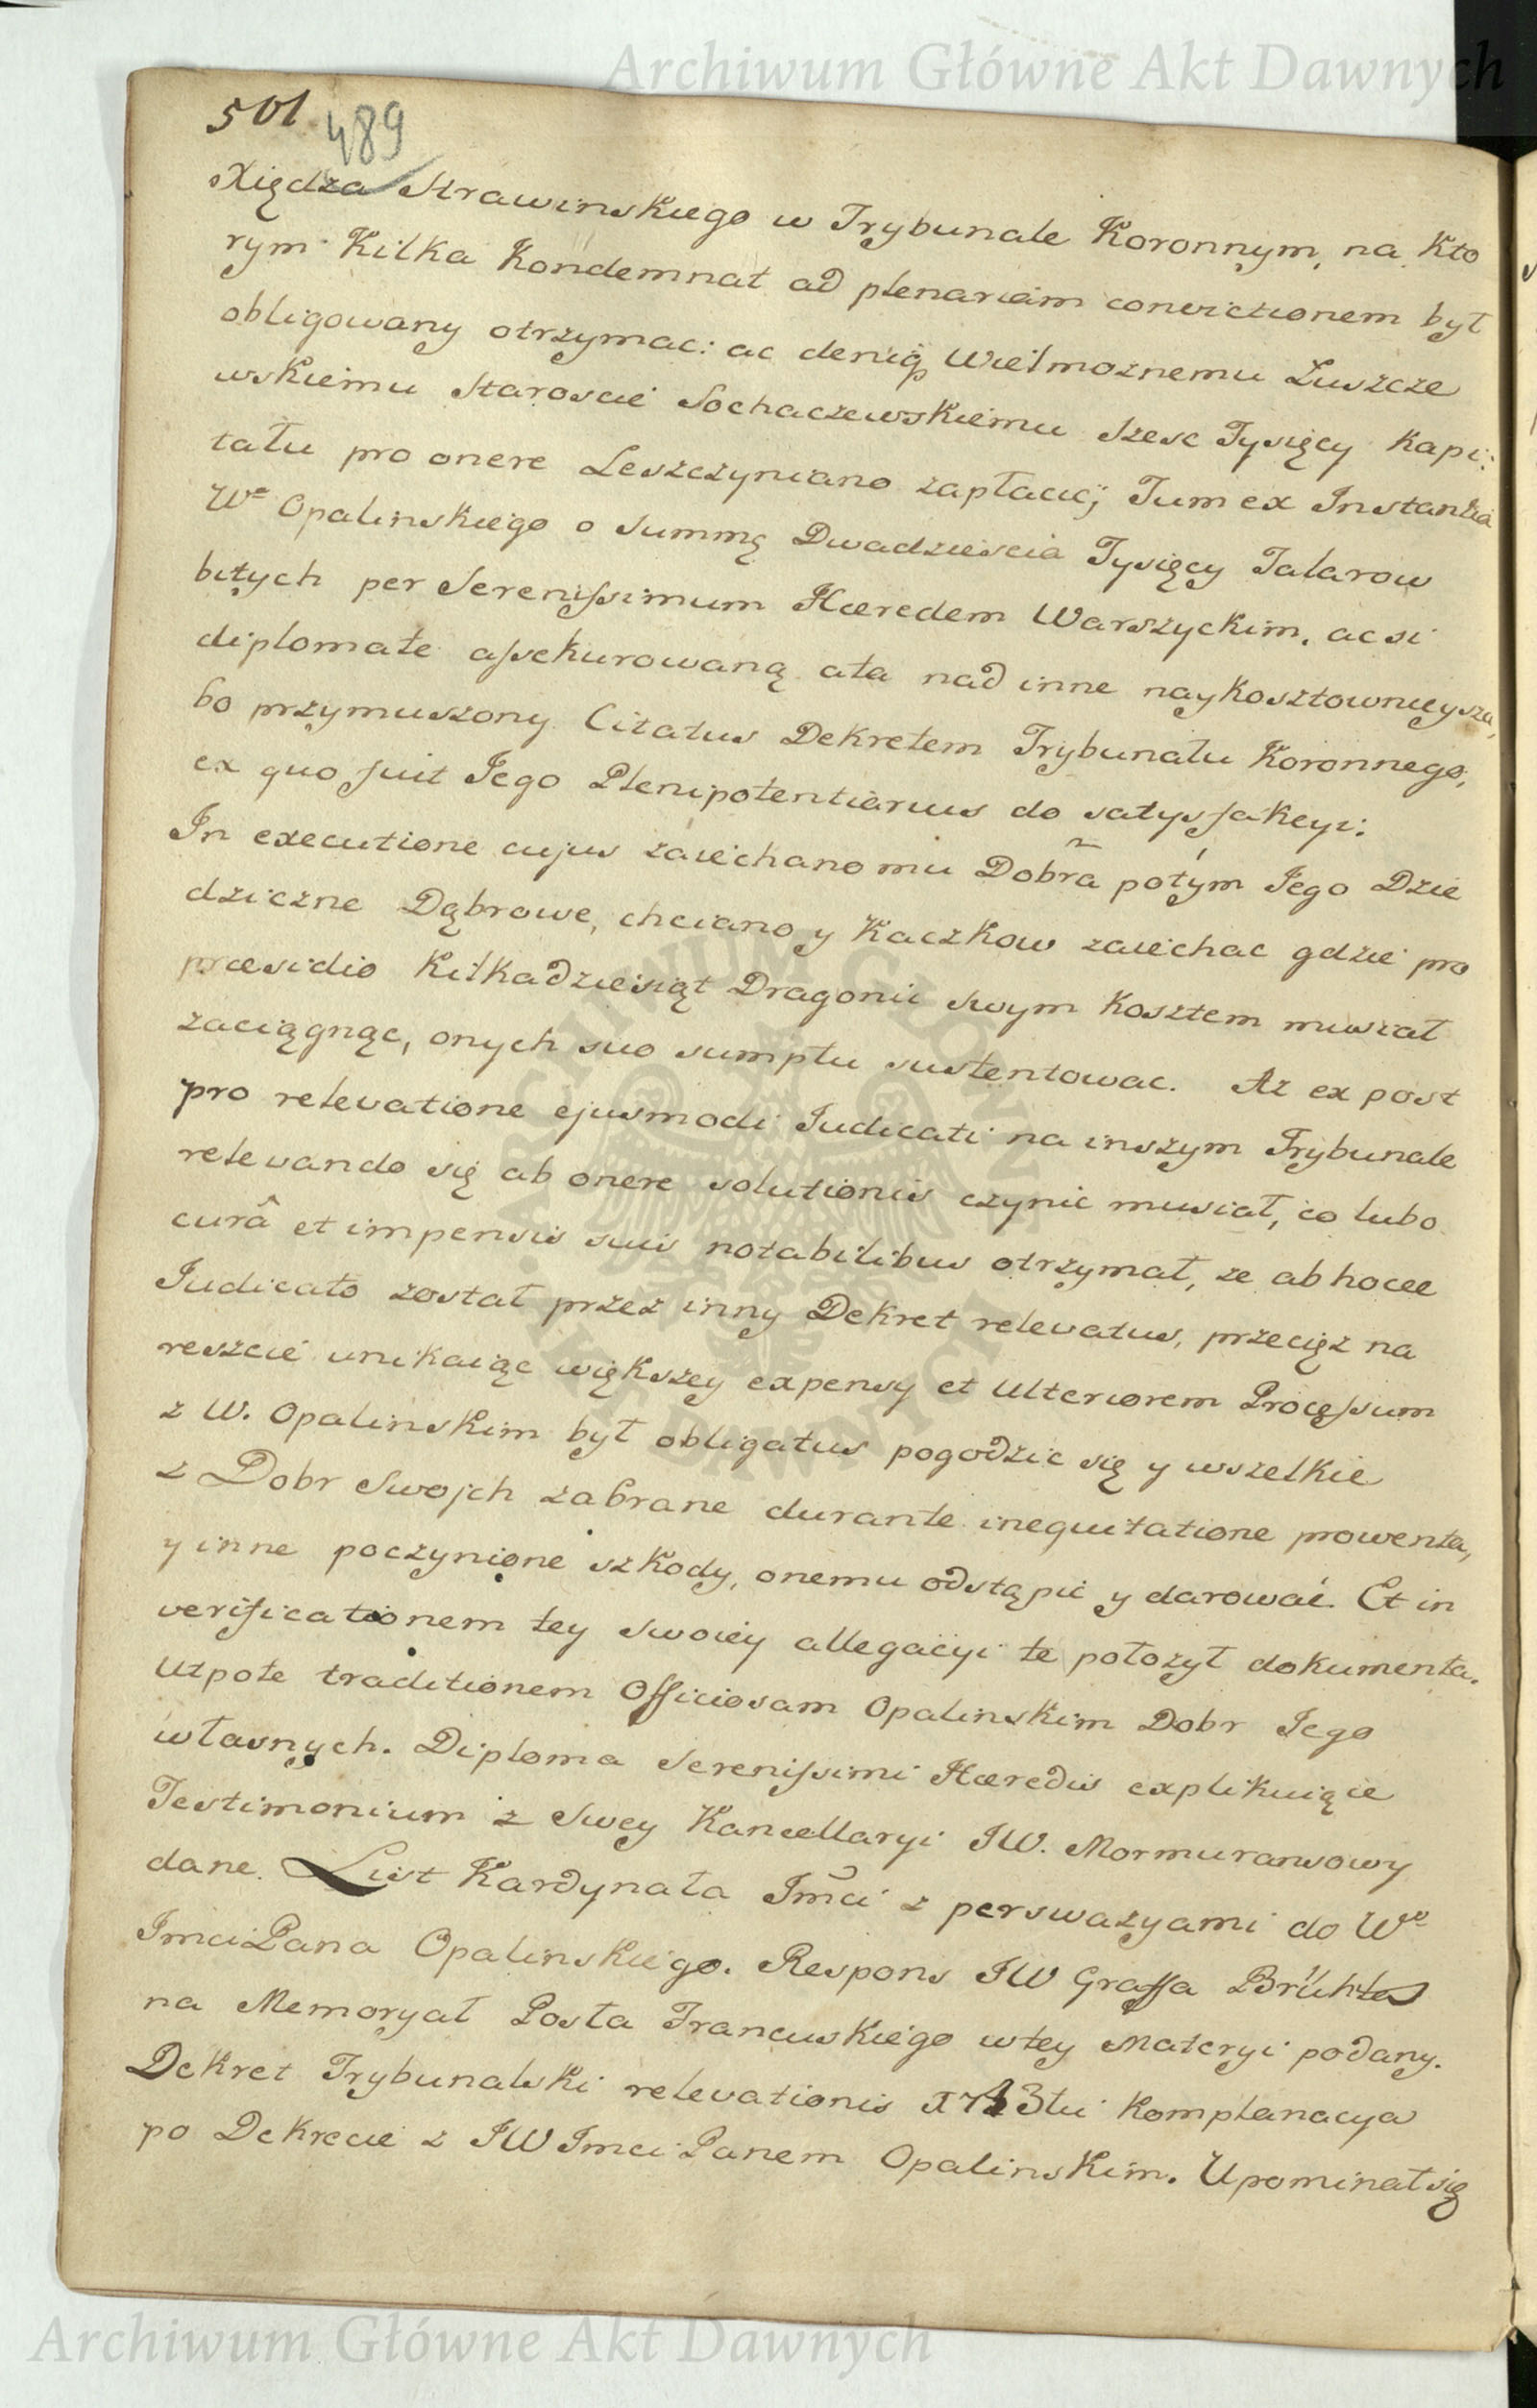 Archiwum Główne Akt Dawnych
501 489
Xiędza Strawinskiego w Trybunale Koronnym, na Kto
rym Kilka Kondemnat ad plenariam convictionem był
obligowany otrzymac: ac deniq Wielmoznemu Łuszcze
wskiemu Staroscie Sochaczewskiemu Szesc Tysięcy Kapi:
tału pro onere Leszczyniano zapłacić; Tum ex Instantia
Wo Opalinskiego o Summę Dwadziescia Tysięcy Talarow
bitych per Serenissimum Hæredem Warszyckim, ac si
diplomate assekurowaną ata nad inne naykosztownieysza,
bo przymuszony Citatus Dekretem Trybunału Koronnego,
ex quo fuit Jego Plenipotentiarius do satysfakcyi:
In executione cujus zaiechano mu Dobra potym Jego Dzie
dziczne Dąbrowe, chciano y Kaczkow zaiechac gdzie pro
præsidio Kilkadziesiąt Dragonii swym Kosztem musiał
zaciągnąc, onych suo sumptu sustentowac. Az ex post
pro relevatione ejusmodi Iudicati na inszym Trybunale
relevando się ab onere solutionis czynic musiał, co lubo
curâ et impensis suis notabilibus otrzymał, ze ab hocce
Iudicato został przez inny Dekret relevatus, przecięz na
reszcie unikaiąc większey expensy et Ulteriorem Processum
z W. Opalinskim był obligatus pogodzic się y wszelkie
z Dobr Swojch zabrane durante inequitatione prowenta,
y inne poczynione szkody, onemu odstąpic y darować. Et in
verificationem tey Swoiey allegacyi te połozył dokumenta.
Utpote traditionem Officiosam Opalinskim Dobr Jego
własnych. Diploma Serenissimi Hæredis explikuiące
Testimonium z Swey Kancellaryi JW. Mormuransowy
dane. List Kardynała Jmci z perswazyami do Wo
JmciPana Opalinskiego. Respons JW Graffa Brühla
na Memoryał Posła Francuskiego wtey Materyi podany.
Dekret Trybunalski relevationis 1743tii Komplanacya
po Dekrecie z JW Jmci Panem Opalinskim. Upominał się
Archiwum Główne Akt Dawnych